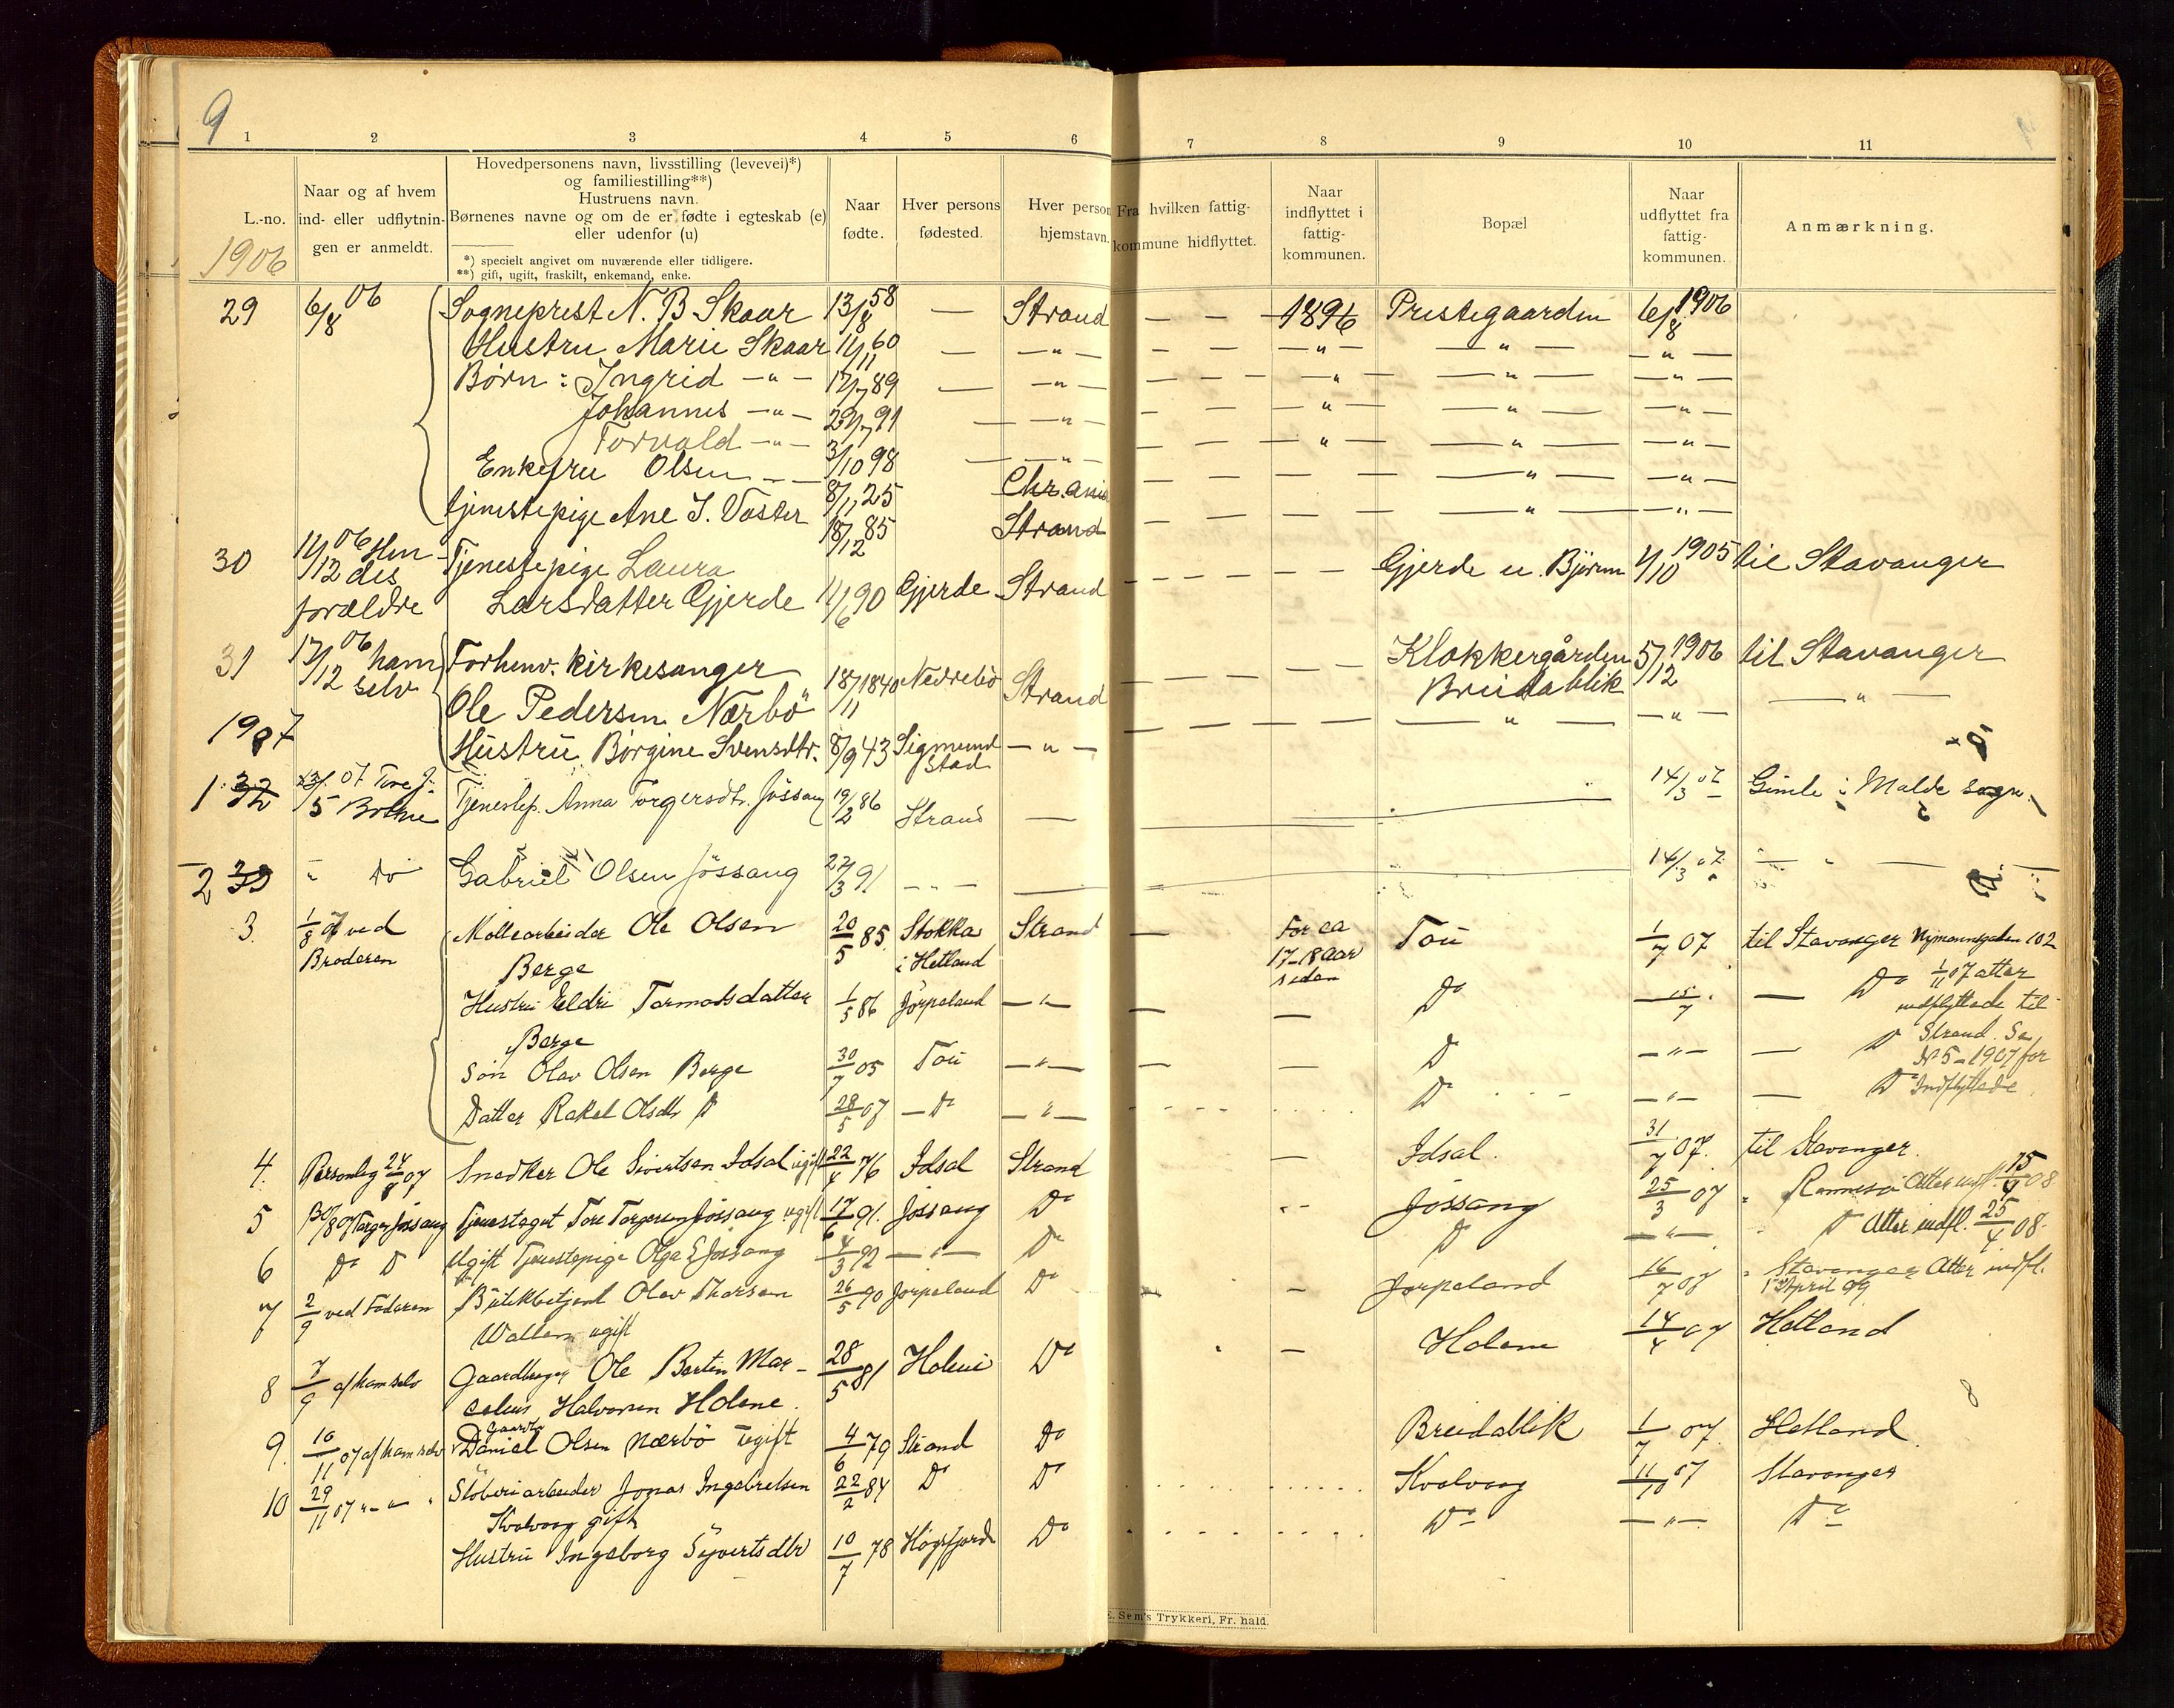 9
1 2 3 4 5 6 7 8 9 10 11
L.-no.
1906
Naar og af hvem
ind- eller udflytnin-
gen er anmeldt.
Hovedpersonens navn, livsstilling (levevei)*)
og familiestilling**)
Hustruens navn.
Børnenes navne og om de er fødte i egteskab (e)
eller udenfor (u)
*) specielt angivet om nuværende eller tidligere.
**) gift, ugift, fraskilt, enkemand, enke.
Naar
fødte.
Hver persons
fødested.
Hver person
hjemstavn.
Fra hvilken fattig-
kommune hidflyttet.
Naar
indflyttet i
fattig-
kommunen.
Bopæl
Naar
udflyttet fra
fattig-
kommunen.
Anmærkning.
29 6/8 06 Sogneprest N. B Skaar 13/8 58 — Strand — — 1896 Prestegaarden 6/8 1906
Hustru Marie Skaar 11/11 60 — — " — — — — " — — " — — " —
Børn : Ingrid — " — 17/7 89 — — " — — — — — " — — " — — " —
Johannes — " — 29/7 91 — — " — — — — — " — — " — — " —
Torvald — " — 3/10 98 — — " — — — — — " — — " — — " —
Enkefru Olsen — — 8/11 25 Chr.ania — — — — — — " — — " —
tjenestepige Ane I. Vaster 18/12 85 Strand — — — — — — " — — " —
30 11/12 06 Hen-
des
forældre
Tjenestepige Laura
Larsdatter Gjerde 11/6 90 Gjerde Strand — — — — — — Gjerde u. Bjørem 1/10 1905 til Stavanger
31 17/12 06 ham
selv
Forhenv. Kirkesanger
Ole Pedersen Nærbö 18/11 1840 Nedrebö Strand — — — — — Klokkergården 5/12 1906 til Stavanger
Breidablik — " —
1907
Hustru Børgine Svensdtr. 8/9 43 Sigmund
stad — " — — — — — — — " — — " —
1 32 23/5 07 Tore J.
Botne
Tjenestep. Anna Torgersdtr. Jössang 19/2 86 Strand — 14/3 07 Gimle i Malde sogn.
2 33 " Do Gabriel Olsen Jössang 27/3 91 — " — — 14/3 07 — " —
3. 1/8 07 ved
Broderen
Møllearbeider Ole Olsen
Berge 20/5 85 Stokka
i Hetland Strand — For ca
17-18 Aar
siden Tou 1/7 07 til Stavanger Nymannsgaden 102
Hustru Eldri Tormodsdatter
Berge 1/5 86 Jørpeland — " — — — Do — " — — Do 1/11 07 atter
indflyttede til
Søn Olav Olsen Berge 30/7 05 Tou — " — — — Do — " — — Do Strand. Se
No 5 - 1907 for
Datter Rakel Olsdtr Do 28/5 07 — Do — " — Do — " — — Do Indflyttede
4. Personlig 24/8 07 Snedker Ole Sivertsen Idsal ugift 22/4 76 Idsal Strand — Idsal. 31/7 07. til Stavanger.
5 30/8 07 Torger Jössang Tjenestegut Tore Torgersen Jössang ugift 17/6 91. Jössang Do Jössang 25/3 07 " Rennesø Atter indfl. 15/4 08
6 Do Do Ugift Tjenestepige Olga E Jössang 4/3 92 — " — Do Do — " — " Do Atter indfl. 25/4 08.
7 2/9 ved Faderen Butikbetjent Olav Thorsen
Wallem ugift 26/5 90 Jørpeland Do — Jørpeland 16/7 07 " Stavanger Atter indfl.
1 April 09
8 7/9 af ham selv Gaardbruger Ole Bertin Mar-
celius Halvorsen Holene. 28/5 81 Holene Do — Holene 14/4 07 Hetland
9. 10/11 07 af ham selv Gaardbr
Daniel Olsen Nærbö Ugift 4/6 79 Strand Do Breidablik 1/7 07 Hetland.
10 29/11 07 " — " Støberiarbeider Jonas Ingebretsen
Kvalvaag gift 22/2 84 Do Do Kvalvaag 11/10 07 Stavanger
Hustru Ingeborg Syvertsdtr 10/7 78 Høgsfjord Do Do — " — Do
8
E. Sem's Trykkeri, Fr. hald.